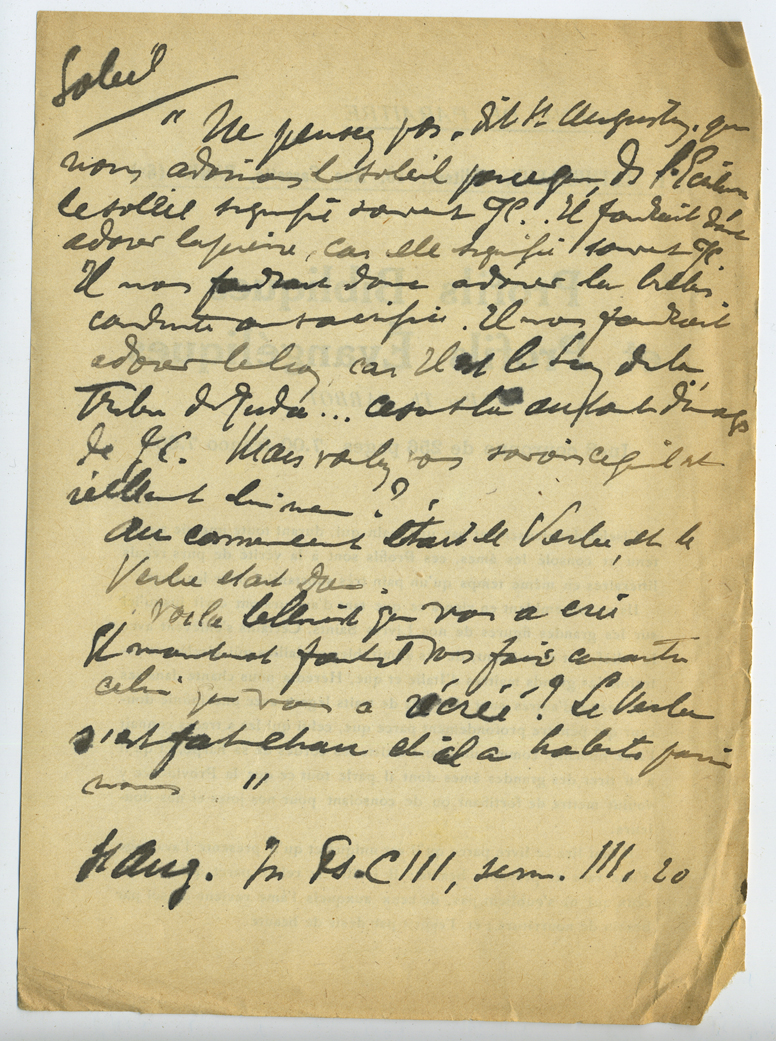 Soleil
" Ne pensez pas, dit St Augustin, que
nous adorions le soleil parceque, ds l'Ecriture
le soleil signifie souvent JC. Il faudrait donc
adorer la pierre, car elle signifie souvent JC.
Il nous faudrait donc adorer la brebis
conduite au sacrifice. Il nous faudrait
adorer le lion, car Il est le Lion de la
Tribu de Juda... ce sont là autant d'images
de JC. Mais voulez vous savoir ce qu'il est
réellement lui meme ?
Au commencement était le Verbe, et le
Verbe etait Dieu.
voila celui qui vous a créé
Et maintenant faut il vous faire connaitre
celui qui vous a récréé ? Le Verbe
s'est fait chair et il a habité parmi
nous "
St Aug. In Ps. CIII, serm. III. 20